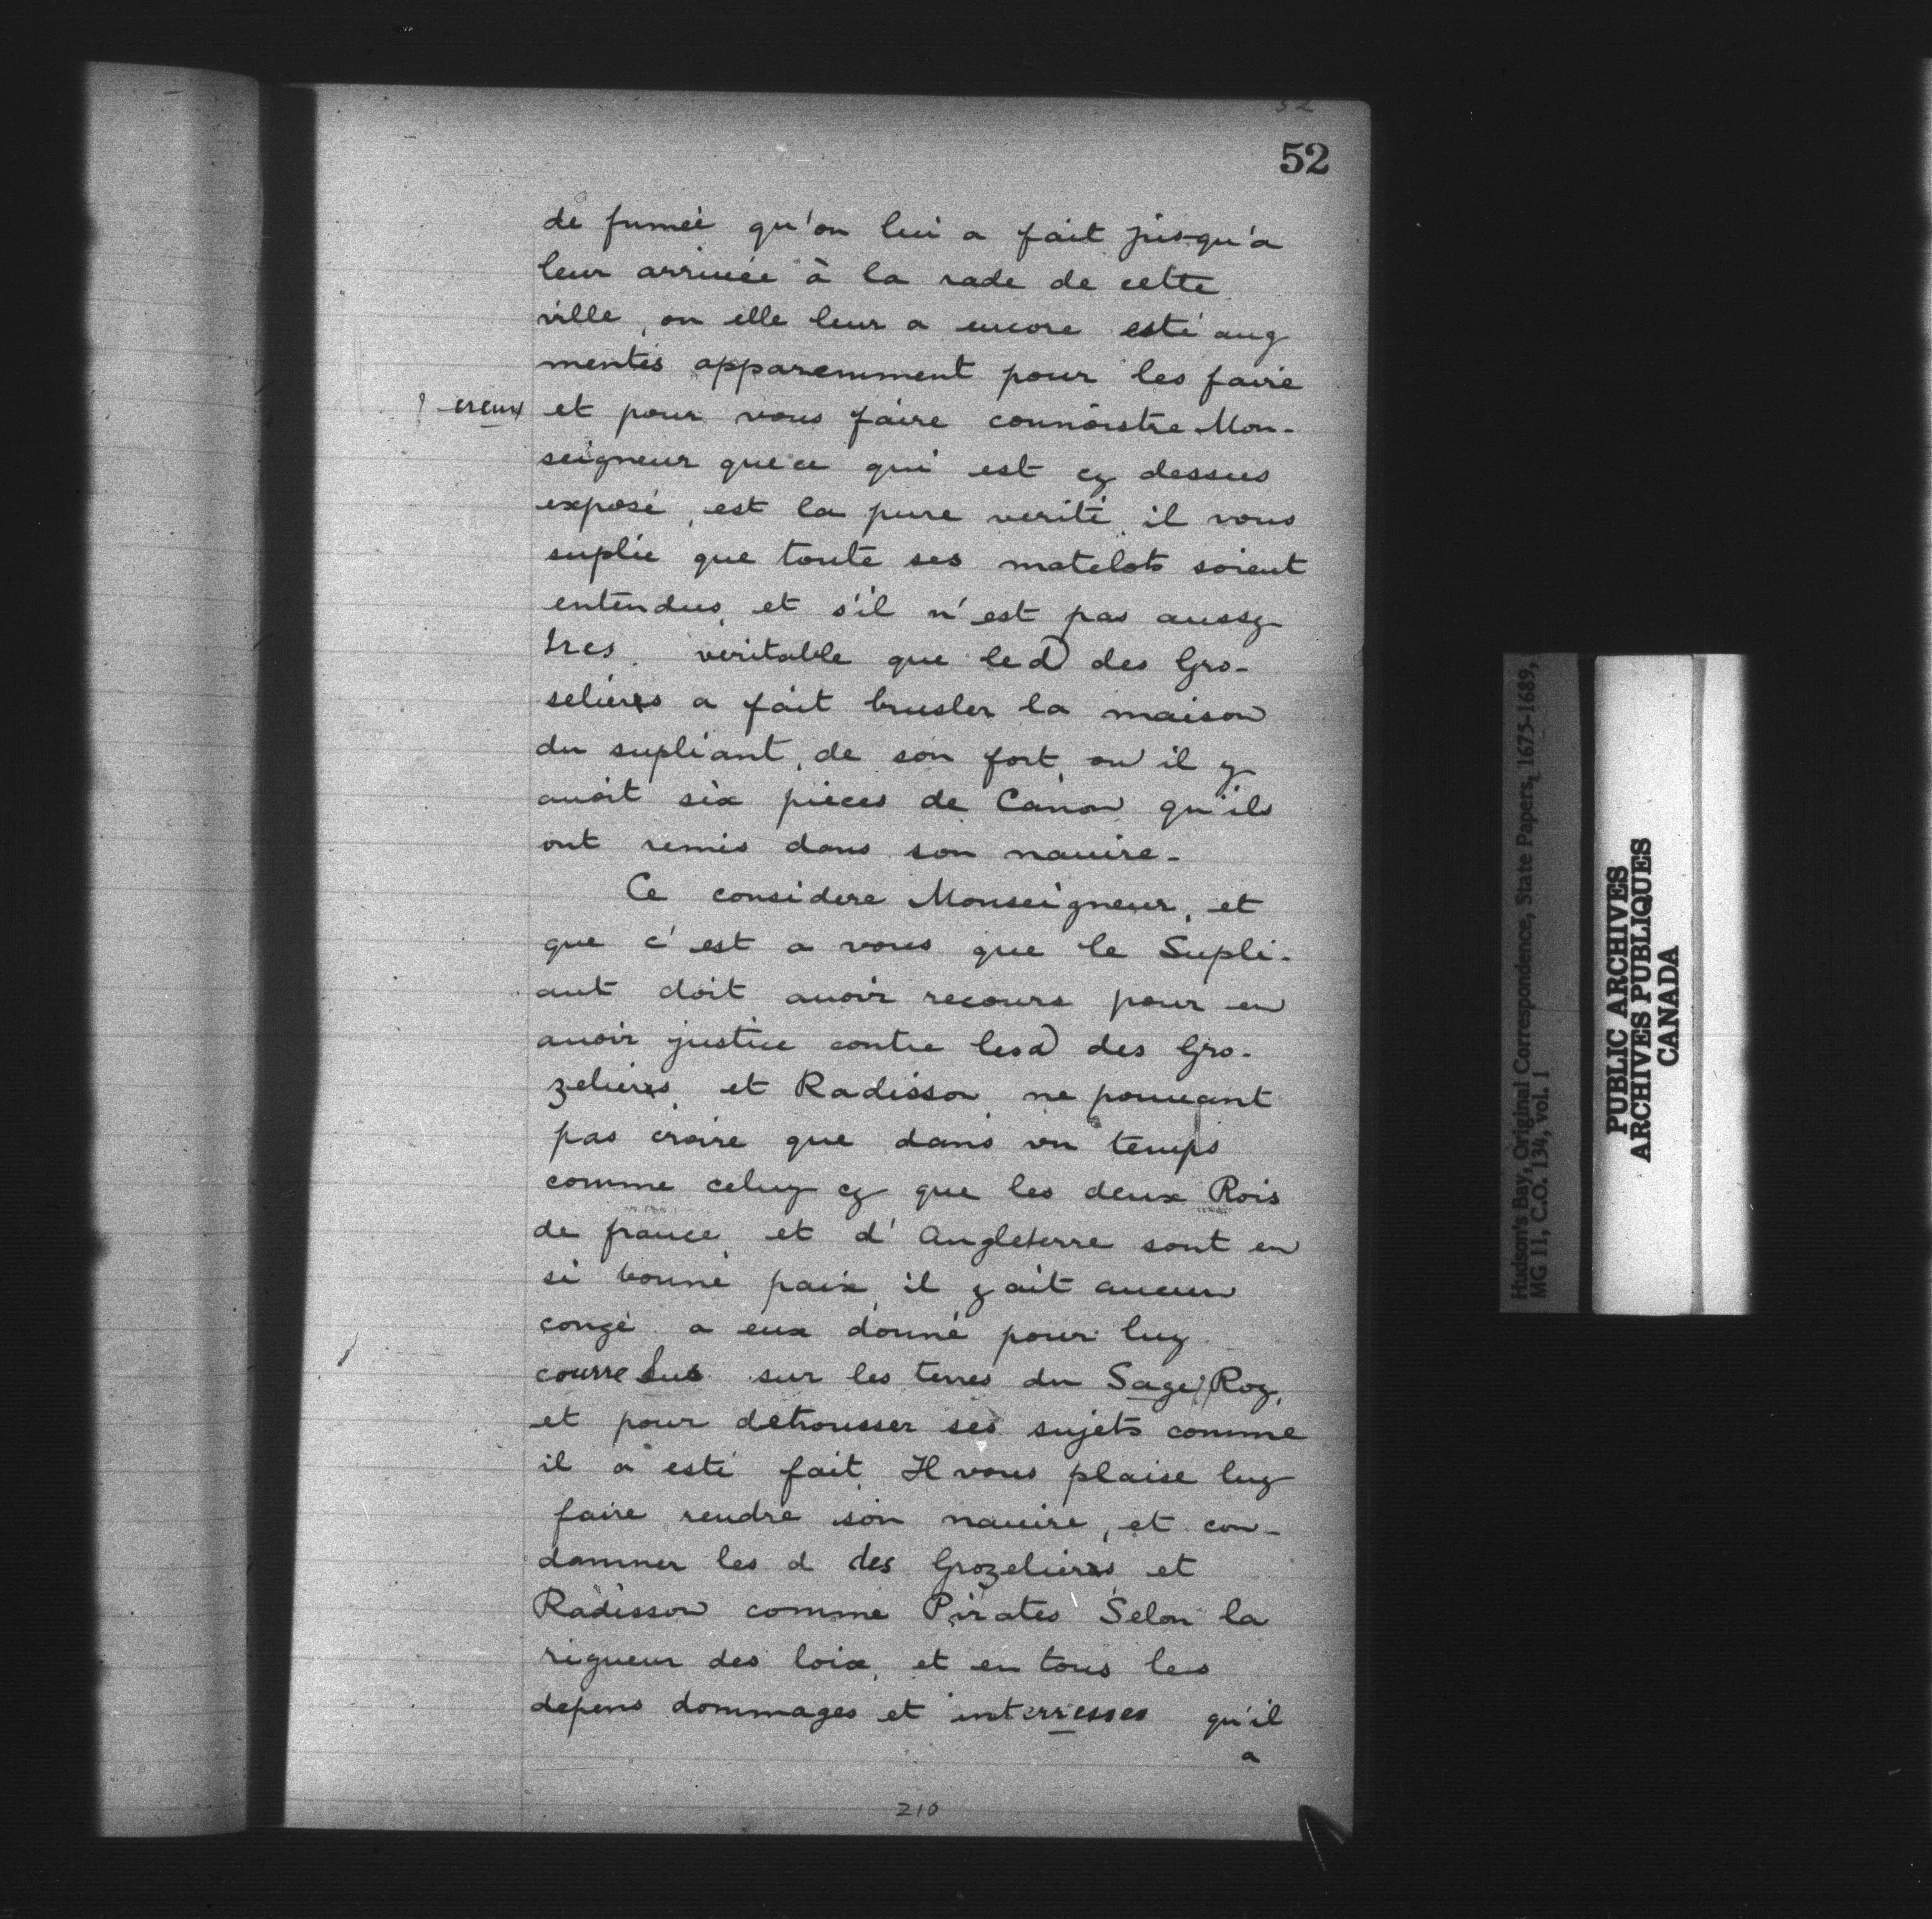 52
52
de fumée qu'on lui a fait jusqu'a
leur arriuée à la rade de cette
ville, ou elle leur a encore esté aug
mentés apparemment pour les faire
? creux et pour vous faire connoistre Mon-
seigneur que ce qui est cy dessus
exposé, est la pure verité, il vous
suplie que toute ses matelots soient
entendus, et s'il n'est pas aussy
tres. veritable que led des Gro-
seliers a fait brusler la maison
du supliant, de son fort, ou il y
auoit six pieces de Canon qu'ils
ont remis dans son nauire.
Ce considere Monseigneur, et
que c'est a vous que le Supli-
ant doit auoir recours pour en
auoir justice contre lesd des Gro-
zeliers, et Radisson, ne pouuant
pas croire que dans vn temps
comme celuy cy que les deux Rois
de france, et d'Angleterre sont en
si bonne paix, il y ait aucun
congé a eux donné pour luy
courre sus sur les terres du Sage Roy,
et pour detrousser ses sujets comme
il a esté fait, Il vous plaise luy
faire rendre son nauire, et con-
damner les d des Grozeliers et
Radisson comme Pirates Selon la
rigueur des loix, et en tous les
depens dommages et interresses qu'il
a
210
Hudson's Bay, Original Correspondence, State Papers, 1675-1689,
MG 11, C.O. 134, vol. 1
PUBLIC ARCHIVES
ARCHIVES PUBLIQUES
CANADA